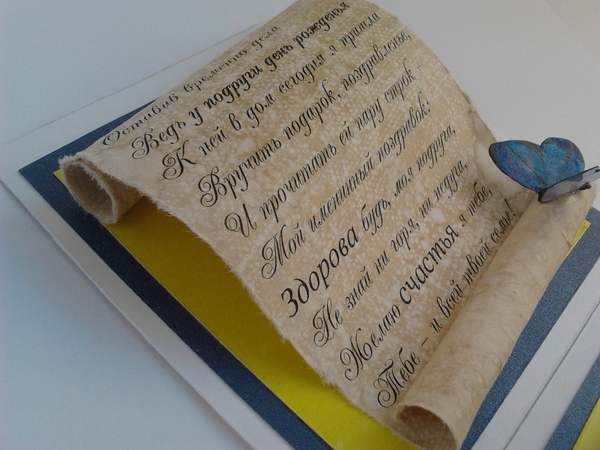 Оставив временно дела
Ведь у подруги день рожденья
К ней в дом сегодня я пришла
Вручить подарок, поздравленье,
И прочитать ей пару строк
Мой именинный поздравок!
Здорова будь, моя подруга,
Не знай ни горя, ни недуга,
Желаю счастья я тебе,
Тебе – и всей твоей семье!